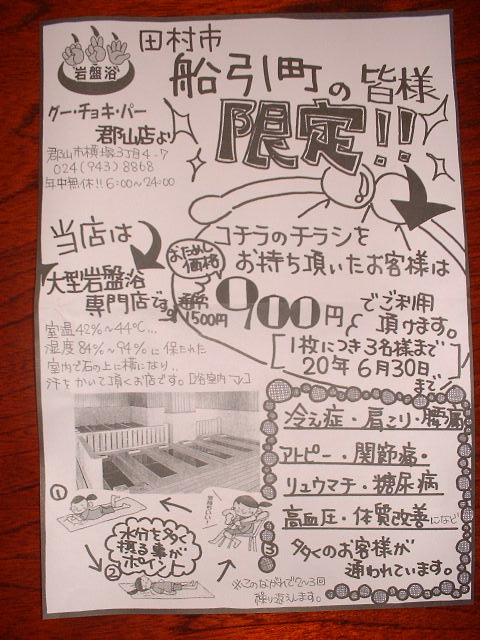 岩盤浴
田村市
船引町の皆様
限定!!
グー・チョキ・パー
郡山店より
郡山市横塚3丁目4-7
024(943)8868
年中無休!! 6:00〜24:00
当店は
大型岩盤浴
専門店です。
室温42%〜44℃...
湿度84%〜94%に保たれた
室内で石の上に横になり..
汗をかいて頂くお店です。[浴室内]
コチラのチラシを
お持ち頂いたお客様は
おためし
価格
通常
1500円
900円
でご利用
頂けます。
[1枚につき3名様まで
20年6月30日
まで]
冷え症・肩こり・腰痛
アトピー・関節痛・
リュウマチ・糖尿病
高血圧・体質改善になど
多くのお客様が
通われています。
①
水分を多く
摂る事が
ポイント
②
③
※このながれで2〜3回
繰り返えします。